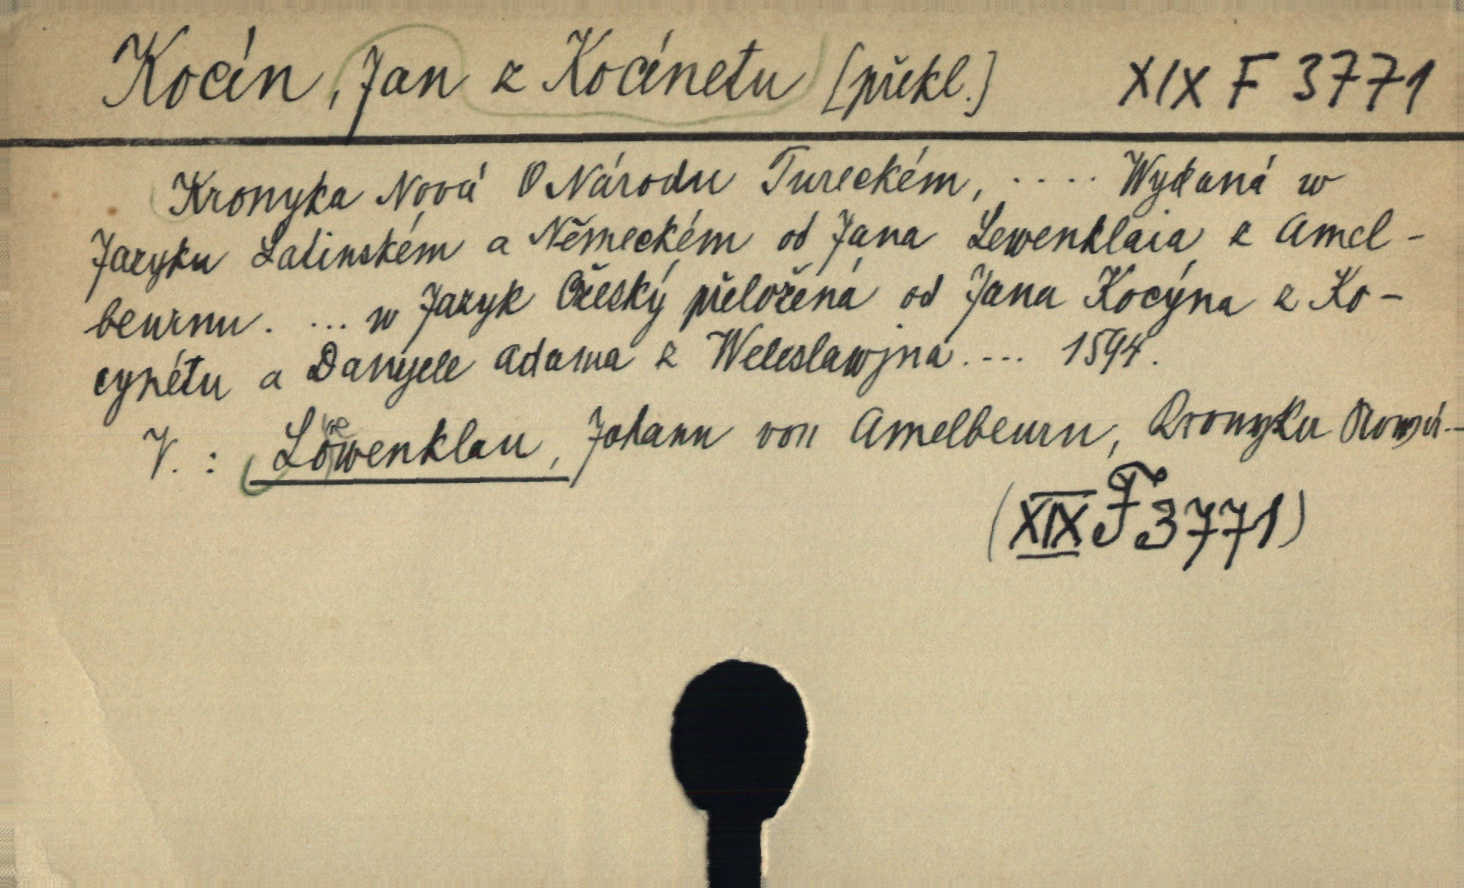 Kocín, Jan z Kocínetu [překl.] XIX F 3771
Kronyka Nová O Národu Tureckém, .... Wydaná w
Jazyku Latinském a Německém od Jana Lewenklaia z Amel-
beurnu. ... w Jazyk Cžeský přeložená od Jana Kocýna z Ko-
cynétu a Danyele Adama z Weleslawjna.... 1594.
V. : Löwenklau, Johann von Amelbeurn, Kronyka Nowá...
(XIX F 3771)